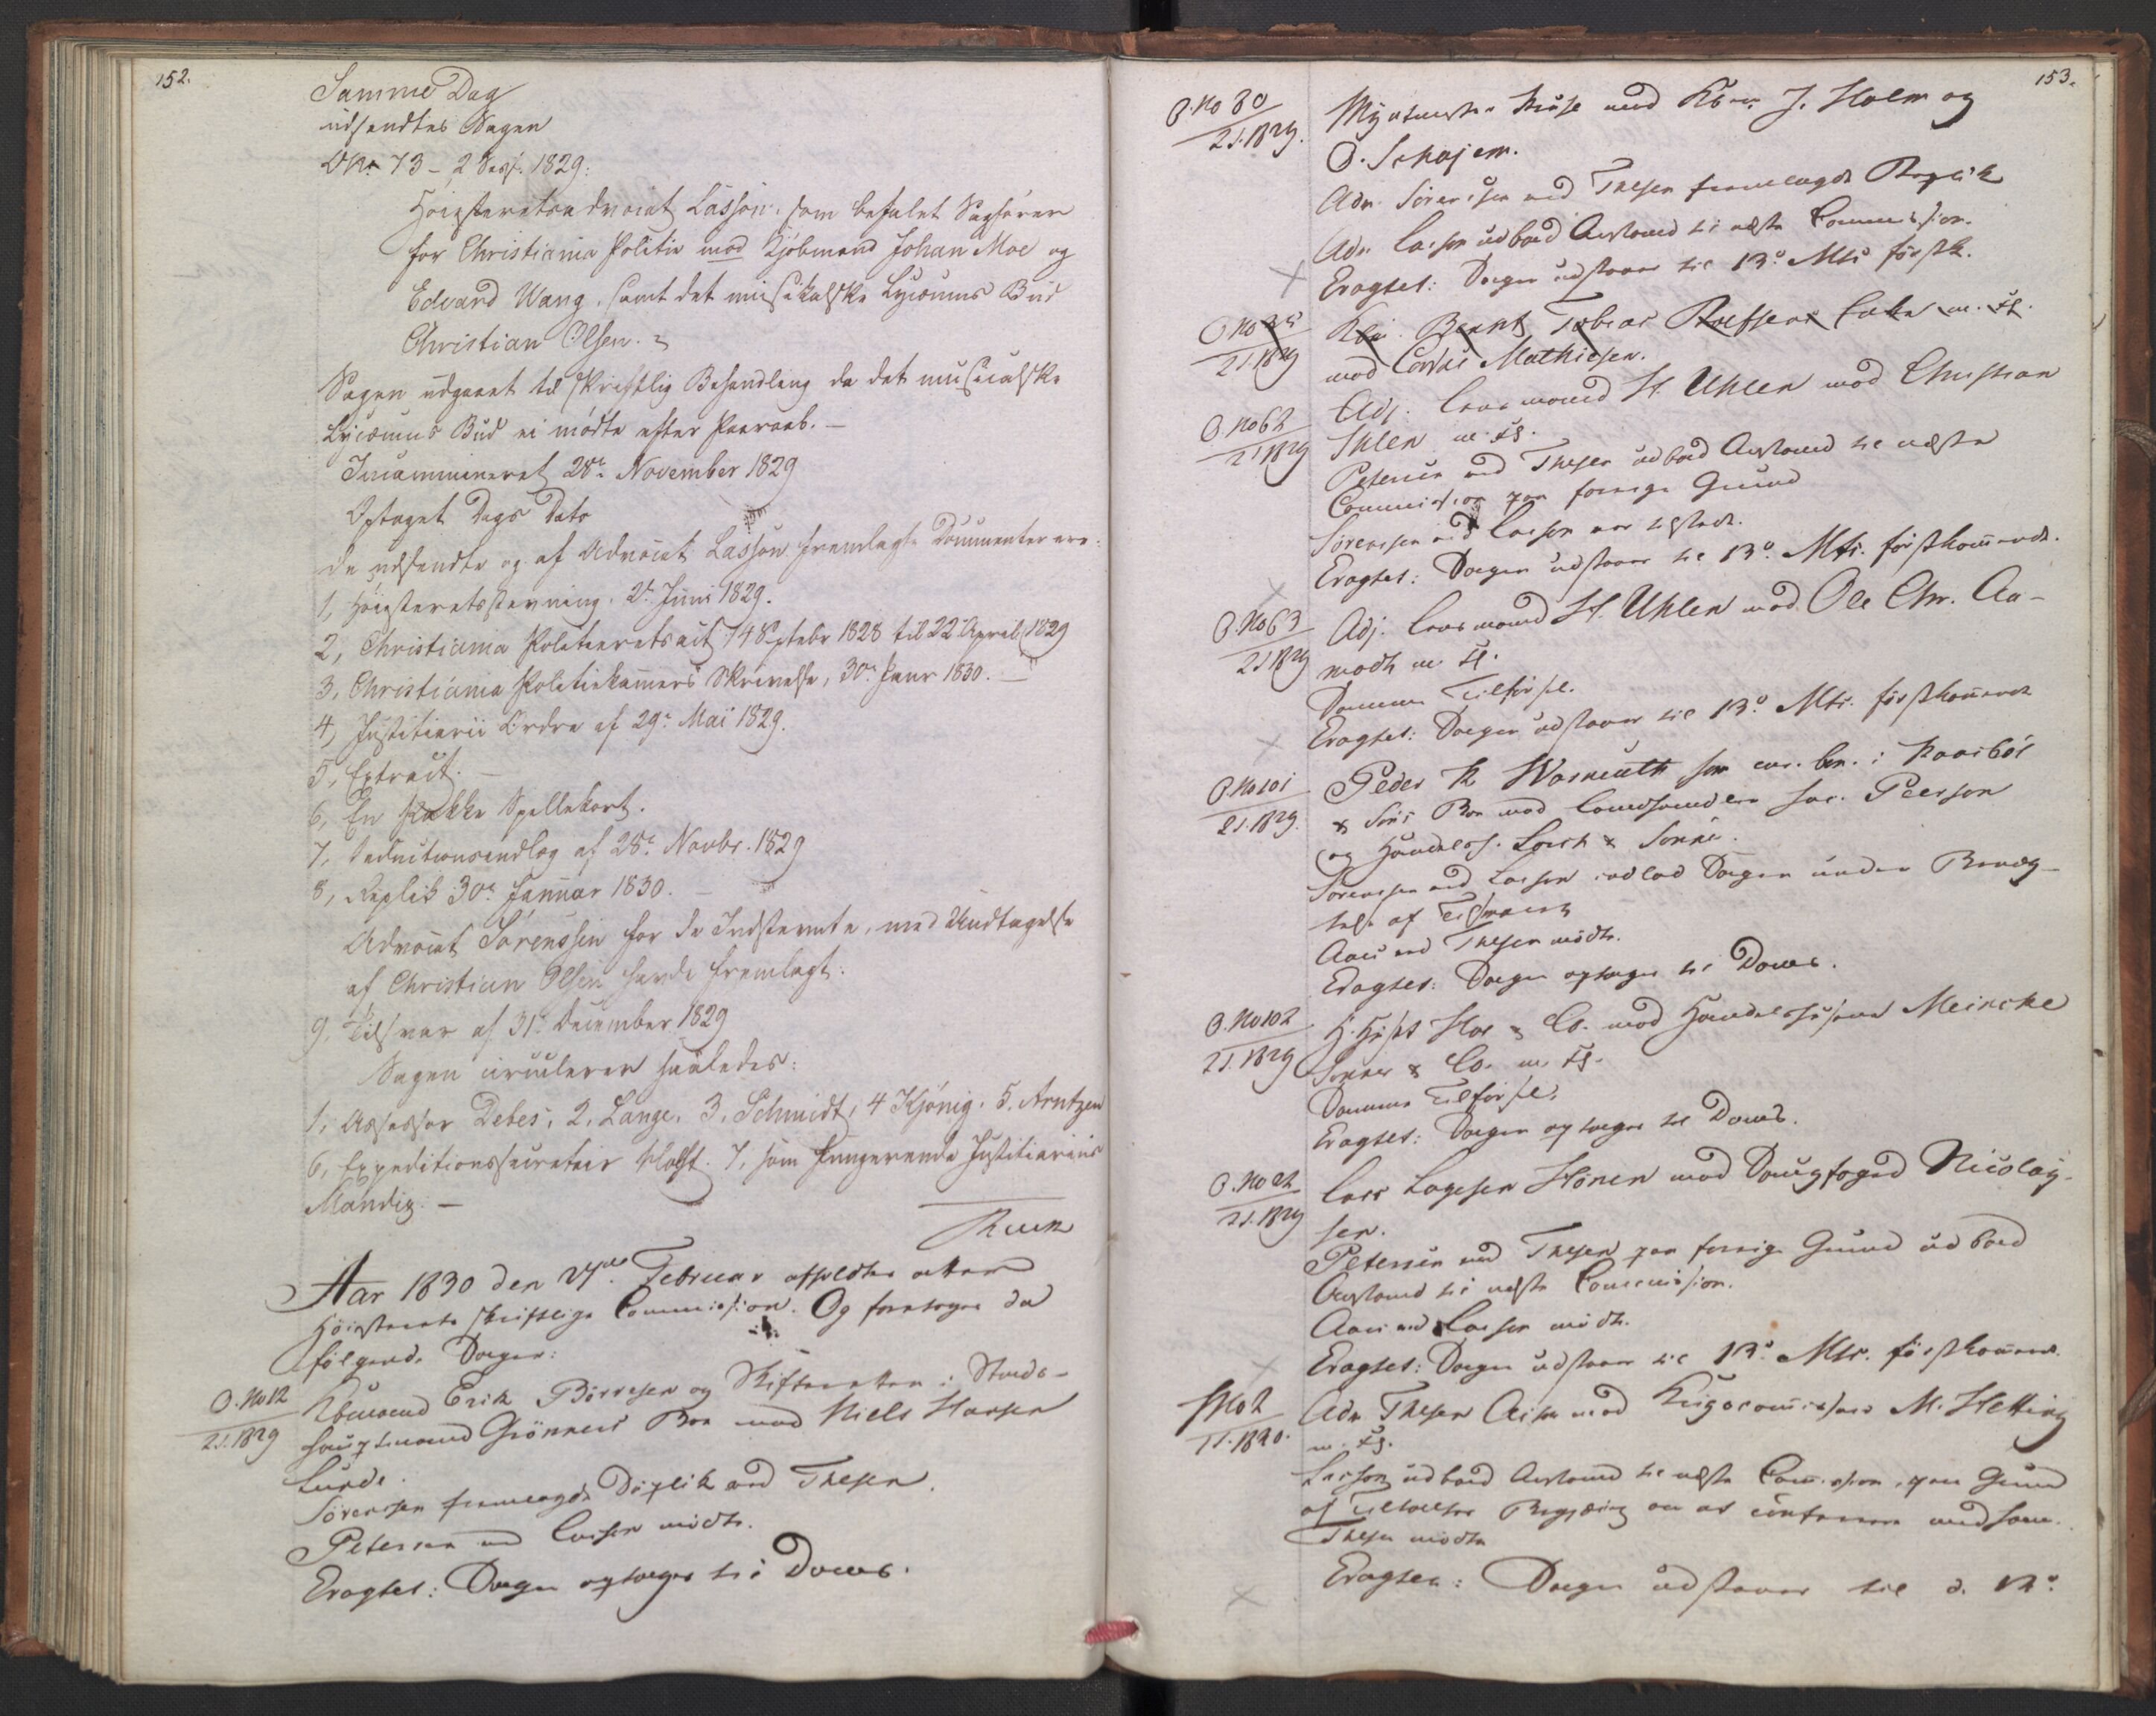 152.
Samme Dag
udsendtes Sagen
O No 73 - 2 Sess. 1829:
Høiesteretsadvocat Lasson, som befalet Sagfører
for Christiania Politie mod Kjøbmand Johan Moe og
Edvard Wang, samt det musikalske Lycæums Bud
Christian Olsen.
Sagen udgaaet til skriftlig Behandling da det musicalske
Lycæums Bud ei mødte efter Paaraab. —
Incammineret 28de November 1829
Optaget Dags Dato
De udsendte og af Advocat Lasson fremlagte Documenter ere:
1, Høiesteretsstevning. 2de Juni 1829.
2, Christiania Politieretsact 14 Septebr 1828 til 22 April 1829
3, Christiania Politiekamers Skrivelse, 30te Janr 1830. —
4, Justitiarii Ordre af 29de Mai 1829.
5, Extract. —
6, En Pakke Spillekort.
7, Deductionsindlæg af 28de Novbr. 1829
8, Replik 30te Januar 1830. —
Advocat Sørenssen for de Indstevnte, med Undtagelse
af Christian Olsen havde fremlagt:
9, Tilsvar af 31te December 1829
Sagen circulerer saaledes:
1, Assessor Debes, 2, Lange. 3, Schmidt, 4 Kjønig. 5. Arntzen
6, Expeditionssecretair Holst. 7, som fungerende Justitiarius
Mandix. —
Aar 1830 den 27de Februar afholdtes atter
Høiesterets skriftlige Commission. Og foretoges da
følgende Sager:
O. No 12 / 2 S. 1829
Kbmand Erik Børresen og Skifteretten i Stads-
hauptmand Grønners Boe mod Niels Hansen
Lunde.
Sørenssen fremlagde Duplik ved Thesen.
Petersen ved Lasson mødte.
Eragtet: Sagen optages til Doms.
153.
O. No 80 / 2 S. 1829.
Myntmester Kruse mod Kbm. J. Holm og
O. Schøjem.
Adv. Sørenssen ved Thesen fremlagde Replik
Adv. Lasson udbad Anstand til næste Commission.
Eragtet: Sagen udstaaer til 13de Mts førstk.
O No 35 / 2 S. 1829
Kbm. Bernt Tobias
mod Mathiesen.
O. No 62 / 2 S 1829
Adj. Lars mand H. Uhlen mod Christian
Ihlen m. fl.
Petersen ved Thesen udbad Anstand til næste
Commission paa forrige Grund
Sørenssen ved Lasson var tilstede.
Eragtet: Sagen udstaaer til 13de Mts. førstkommende.
O. No 63 / 2 S 1829
Adj. Lars mand H. Uhlen mod Ole Chr. Aa-
modt m. fl.
Samme Tilførsel.
Eragtet: Sagen udstaaer til 13de Mts. førstkommende
O. No 101 / 2 S. 1829.
Peder K. Wasmuth som
& Søns Boe mod Peerson
og Handelsh. &
Sørenssen ved Lasson indlod Sagen under Benæg-
telse af Tilsvaret
Aars ved Thesen mødte.
Eragtet: Sagen optages til Doms.
O. No 102 / 2 S. 1829
& Co. mod Handelshuset Meincke
Sønner & Co. m. fl.
Samme Tilførsel.
Eragtet: Sagen optages til Doms.
O. No 22 / 2 S. 1829
Lars Hønen mod Sougfoged Nicolay-
sen.
Petersen ved Thesen paa forrige Grund udbad
Anstand til næste Commission.
Aars ved Lasson mødte.
Eragtet: Sagen udstaaer til 13de Mts. førstkommende.
No 2 / 1 S. 18
Adv. Thesen mod Krigscommissair M. Hetting
m. fl.
Lasson udbad Anstand til næste Commission, paa Grund
af Begjæring om at conferere med ham.
Thesen mødte
Eragtet: Sagen udstaaer til d. 13de